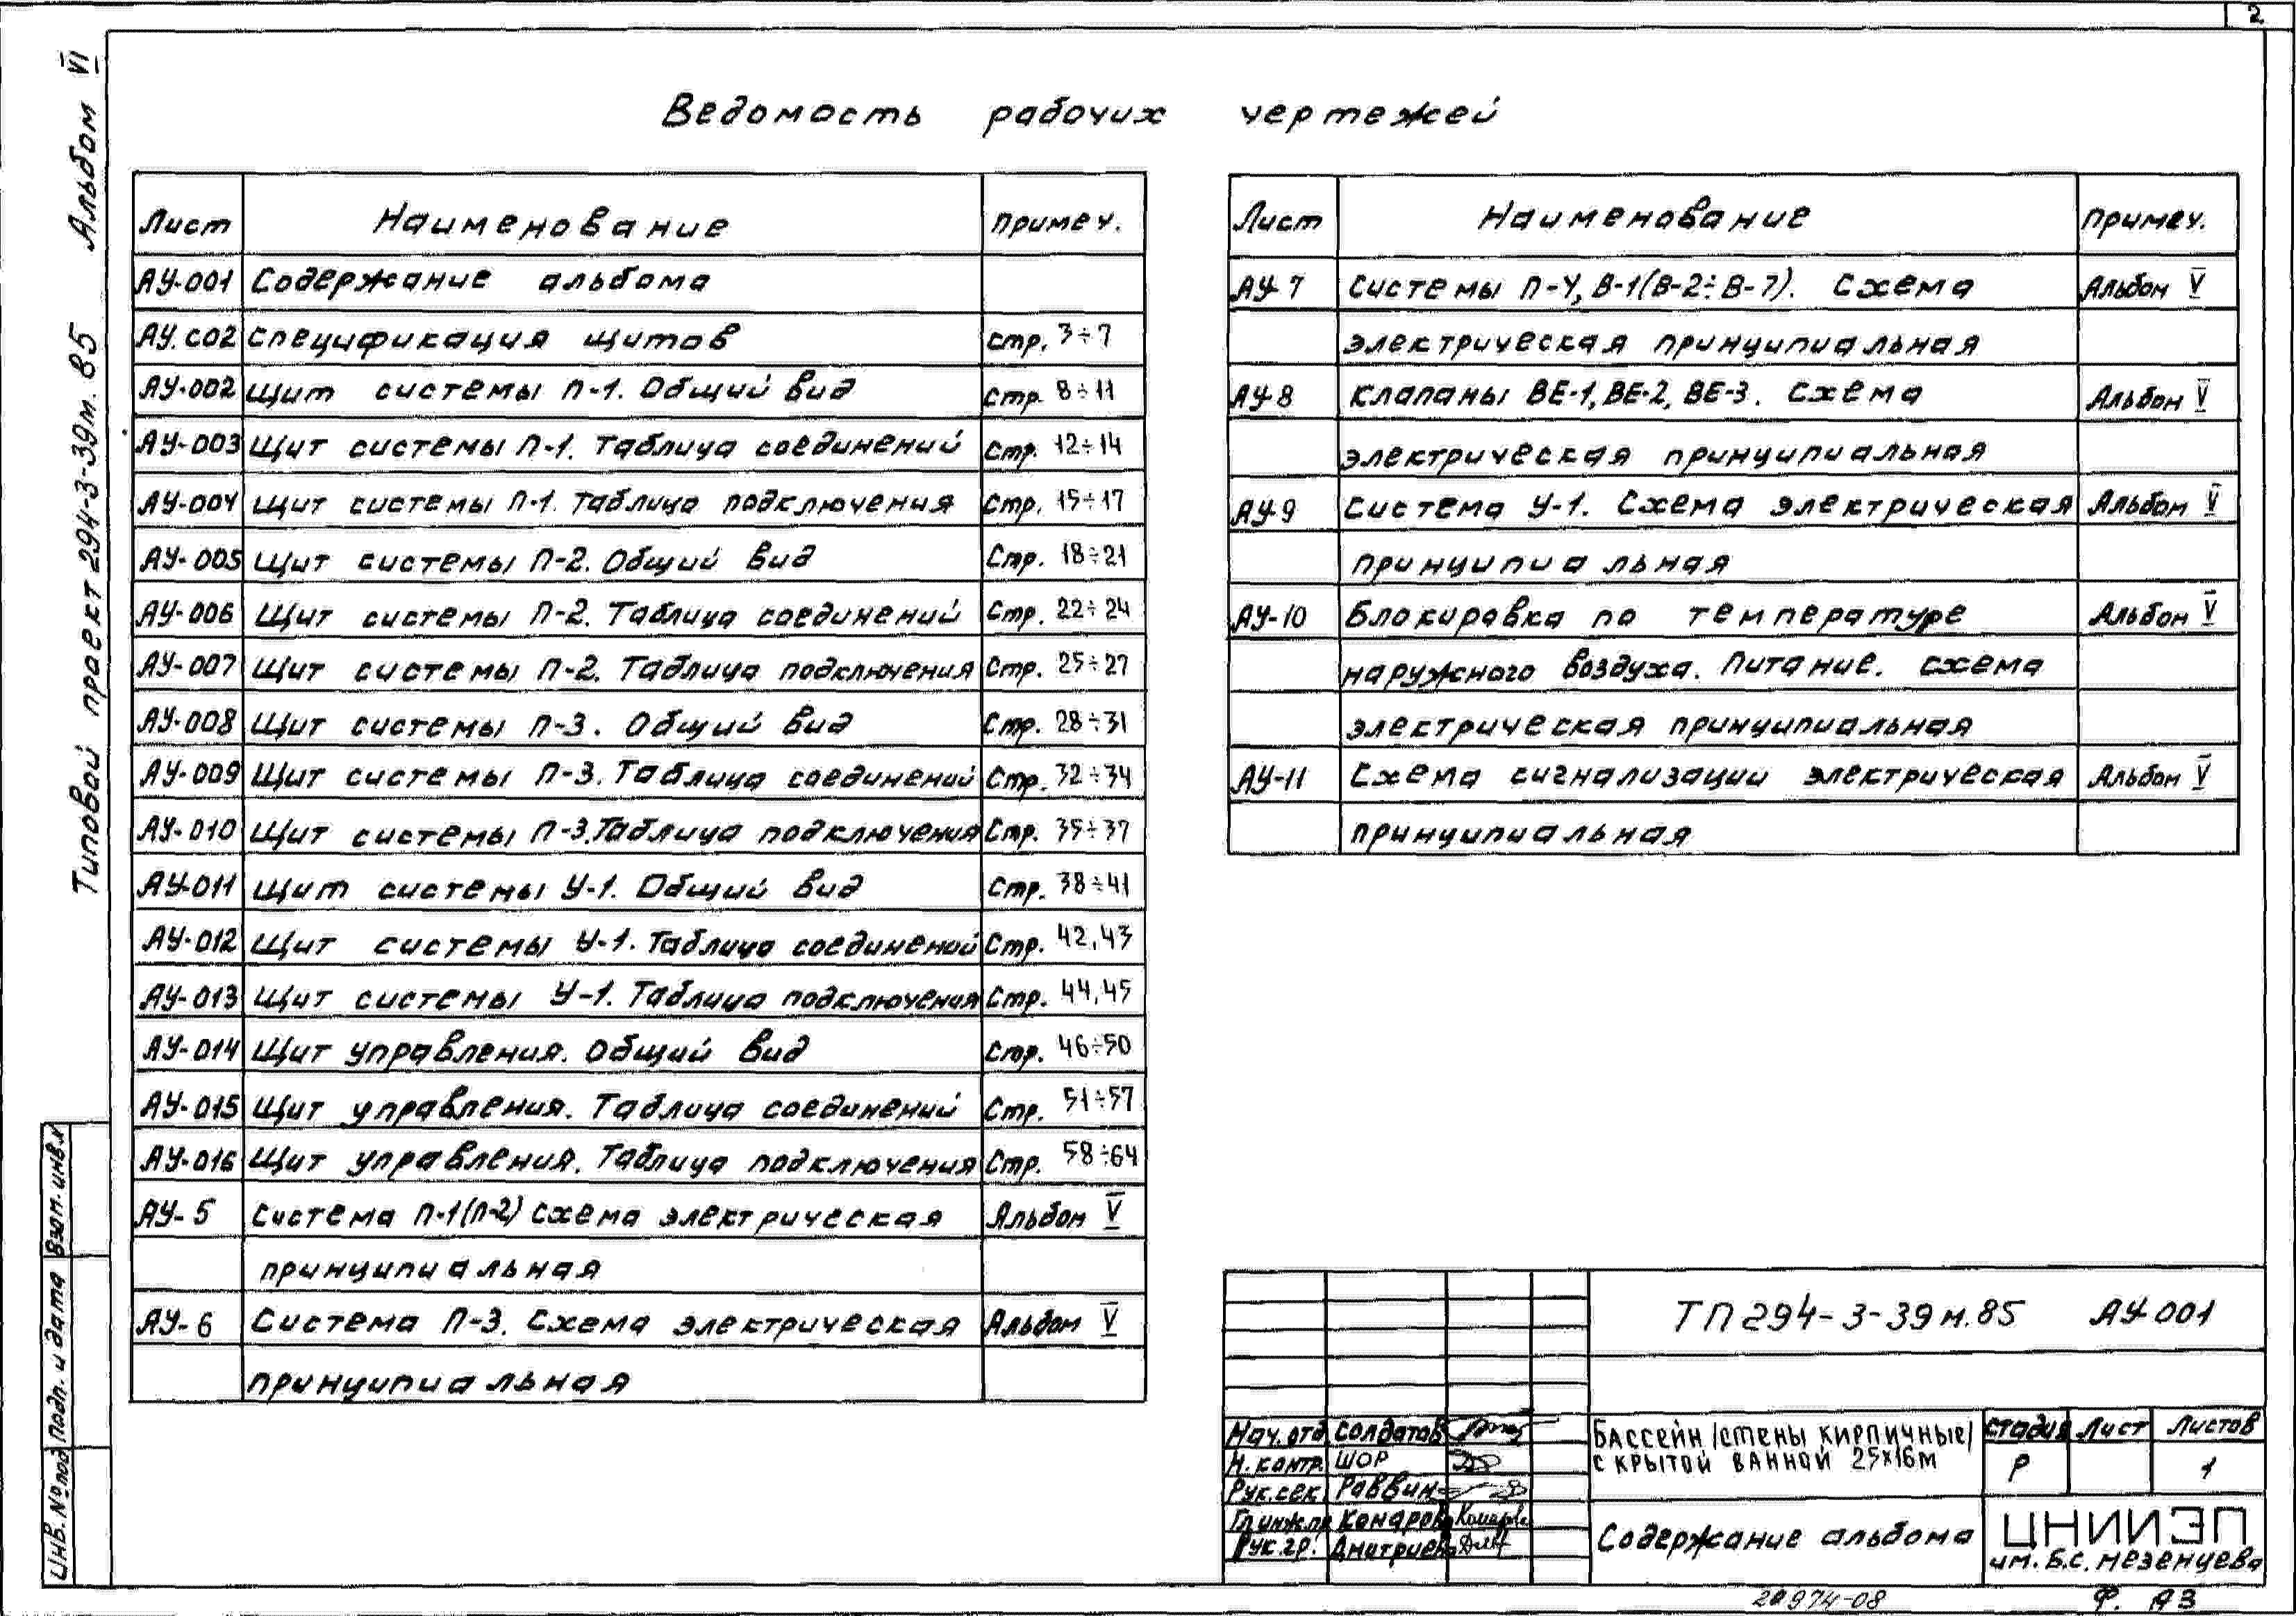 2
Типовой проект 294-3-39м.85 Альбом VI
Ведомость рабочих чертежей
Лист Наименование Примеч.
АУ-001 Содержание альбома
АУ.С02 Спецификация щитов стр. 3÷7
АУ-002 Щит системы П-1. Общий вид Стр. 8÷11
АУ-003 Щит системы П-1. Таблица соединений Стр. 12÷14
АУ-004 Щит системы П-1. Таблица подключения Стр. 15÷17
АУ-005 Щит системы П-2. Общий вид Стр. 18÷21
АУ-006 Щит системы П-2. Таблица соединений Стр. 22÷24
АУ-007 Щит системы П-2. Таблица подключения Стр. 25÷27
АУ-008 Щит системы П-3. Общий вид Стр. 28÷31
АУ-009 Щит системы П-3. Таблица соединений Стр. 32÷34
АУ-010 Щит системы П-3. Таблица подключения Стр. 35÷37
АУ-011 Щит системы У-1. Общий вид Стр. 38÷41
АУ-012 Щит системы У-1. Таблица соединений Стр. 42,43
АУ-013 Щит системы У-1. Таблица подключения Стр. 44,45
АУ-014 Щит управления. Общий вид Стр. 46÷50
АУ-015 Щит управления. Таблица соединений Стр. 51÷57
АУ-016 Щит управления. Таблица подключения Стр. 58÷64
АУ-5 Система П-1(П-2) схема электрическая Альбом V
принципиальная
АУ-6 Система П-3. Схема электрическая Альбом V
принципиальная
Лист Наименование Примеч.
АУ-7 Системы П-4, В-1(В-2÷В-7). Схема Альбом V
электрическая принципиальная
АУ-8 Клапаны ВЕ-1, ВЕ-2, ВЕ-3. Схема Альбом V
электрическая принципиальная
АУ-9 Система У-1. Схема электрическая Альбом V
принципиальная
АУ-10 Блокировка по температуре Альбом V
наружного воздуха. Питание. Схема
электрическая принципиальная
АУ-11 Схема сигнализации электрическая Альбом V
принципиальная
ТП 294-3-39м.85 АУ-001
Нач.отд Солдатов
Н.контр. Шор
Рук.сек. Раввин
Гл.инж.пр Комарова Комарова
Рук.гр. Дмитриева
Бассейн /стены кирпичные/
с крытой ванной 25х16м
Стадия Лист Листов
Р 1
Содержание альбома
ЦНИИЭП
им. Б.С. Мезенцева
Инв. № под Подп. и дата Взам.инв.№
20974-08 Ф. А3